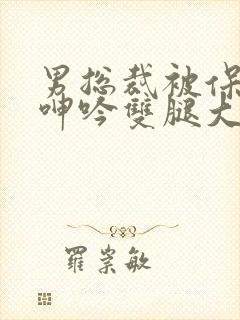 男总裁被保
呻吟雙腿大
羅崇敏